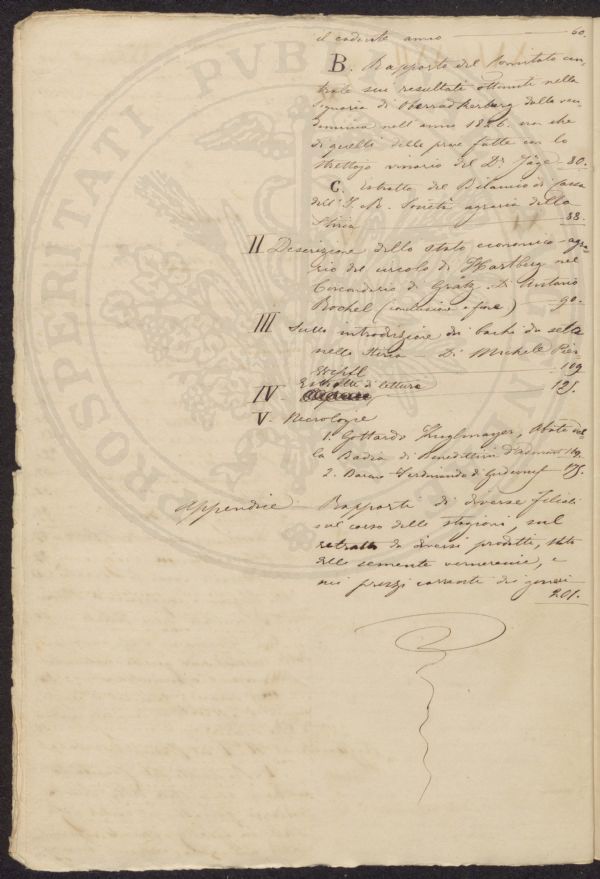 il cadente anno — 60.
B. Rapporto del Comitato cen-
trale sui resultati ottenuti nella
Signoria di Oberradkersburg dalla ven-
demmia nell'anno 1826. non che
di quelli delle prove fatte con lo
strettojo vinario del Dr. Jäge — 80.
C. Estratto del Bilancio di Cassa
dell'I. R. Società agraria della
Stiria — 88.
II Descrizione dello stato economico-agra-
rio del circolo di Hartberg nel
Circondario di Grätz. Di Antonio
Rochel (conclusione e fine) — 90.
III Sulla introduzione dei bachi da seta
nella Stiria Di Michele Pier-
— 109
IV. Estratti di lettere — 125.
V. Necrologie
1. Gottardo Kuglmayer, Abate del-
la Badia di Benedettini d'Admont 169.
2. Barone Ferdinando di 175.
Appendice Rapporti di diverse filiali
sul corso delle stagioni, sul
retratto da diversi prodotti, stato
delle semente vernereccie, e
nei prezzi corrente dei generi
201.
PRO PERITATI PUBLI